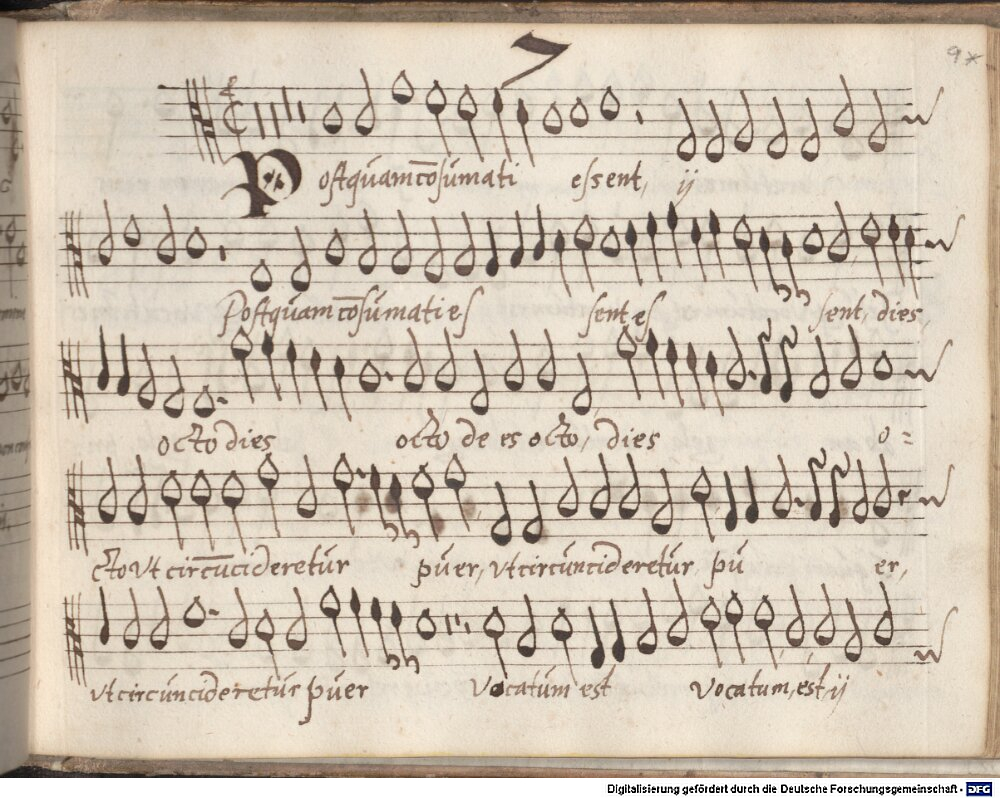 7
9
Postquam co̅sumati essent, ij
Postquam co̅sumati es sent es sent, dies,
octo dies octo de es octo, dies o =
cto Vt circu̅cideretur puer, ut circuncideretur pu er,
ut circuncideretur puer Vocatum est Vocatum, est ij
Digitalisierung gefördert durch die Deutsche Forschungsgemeinschaft - DFG